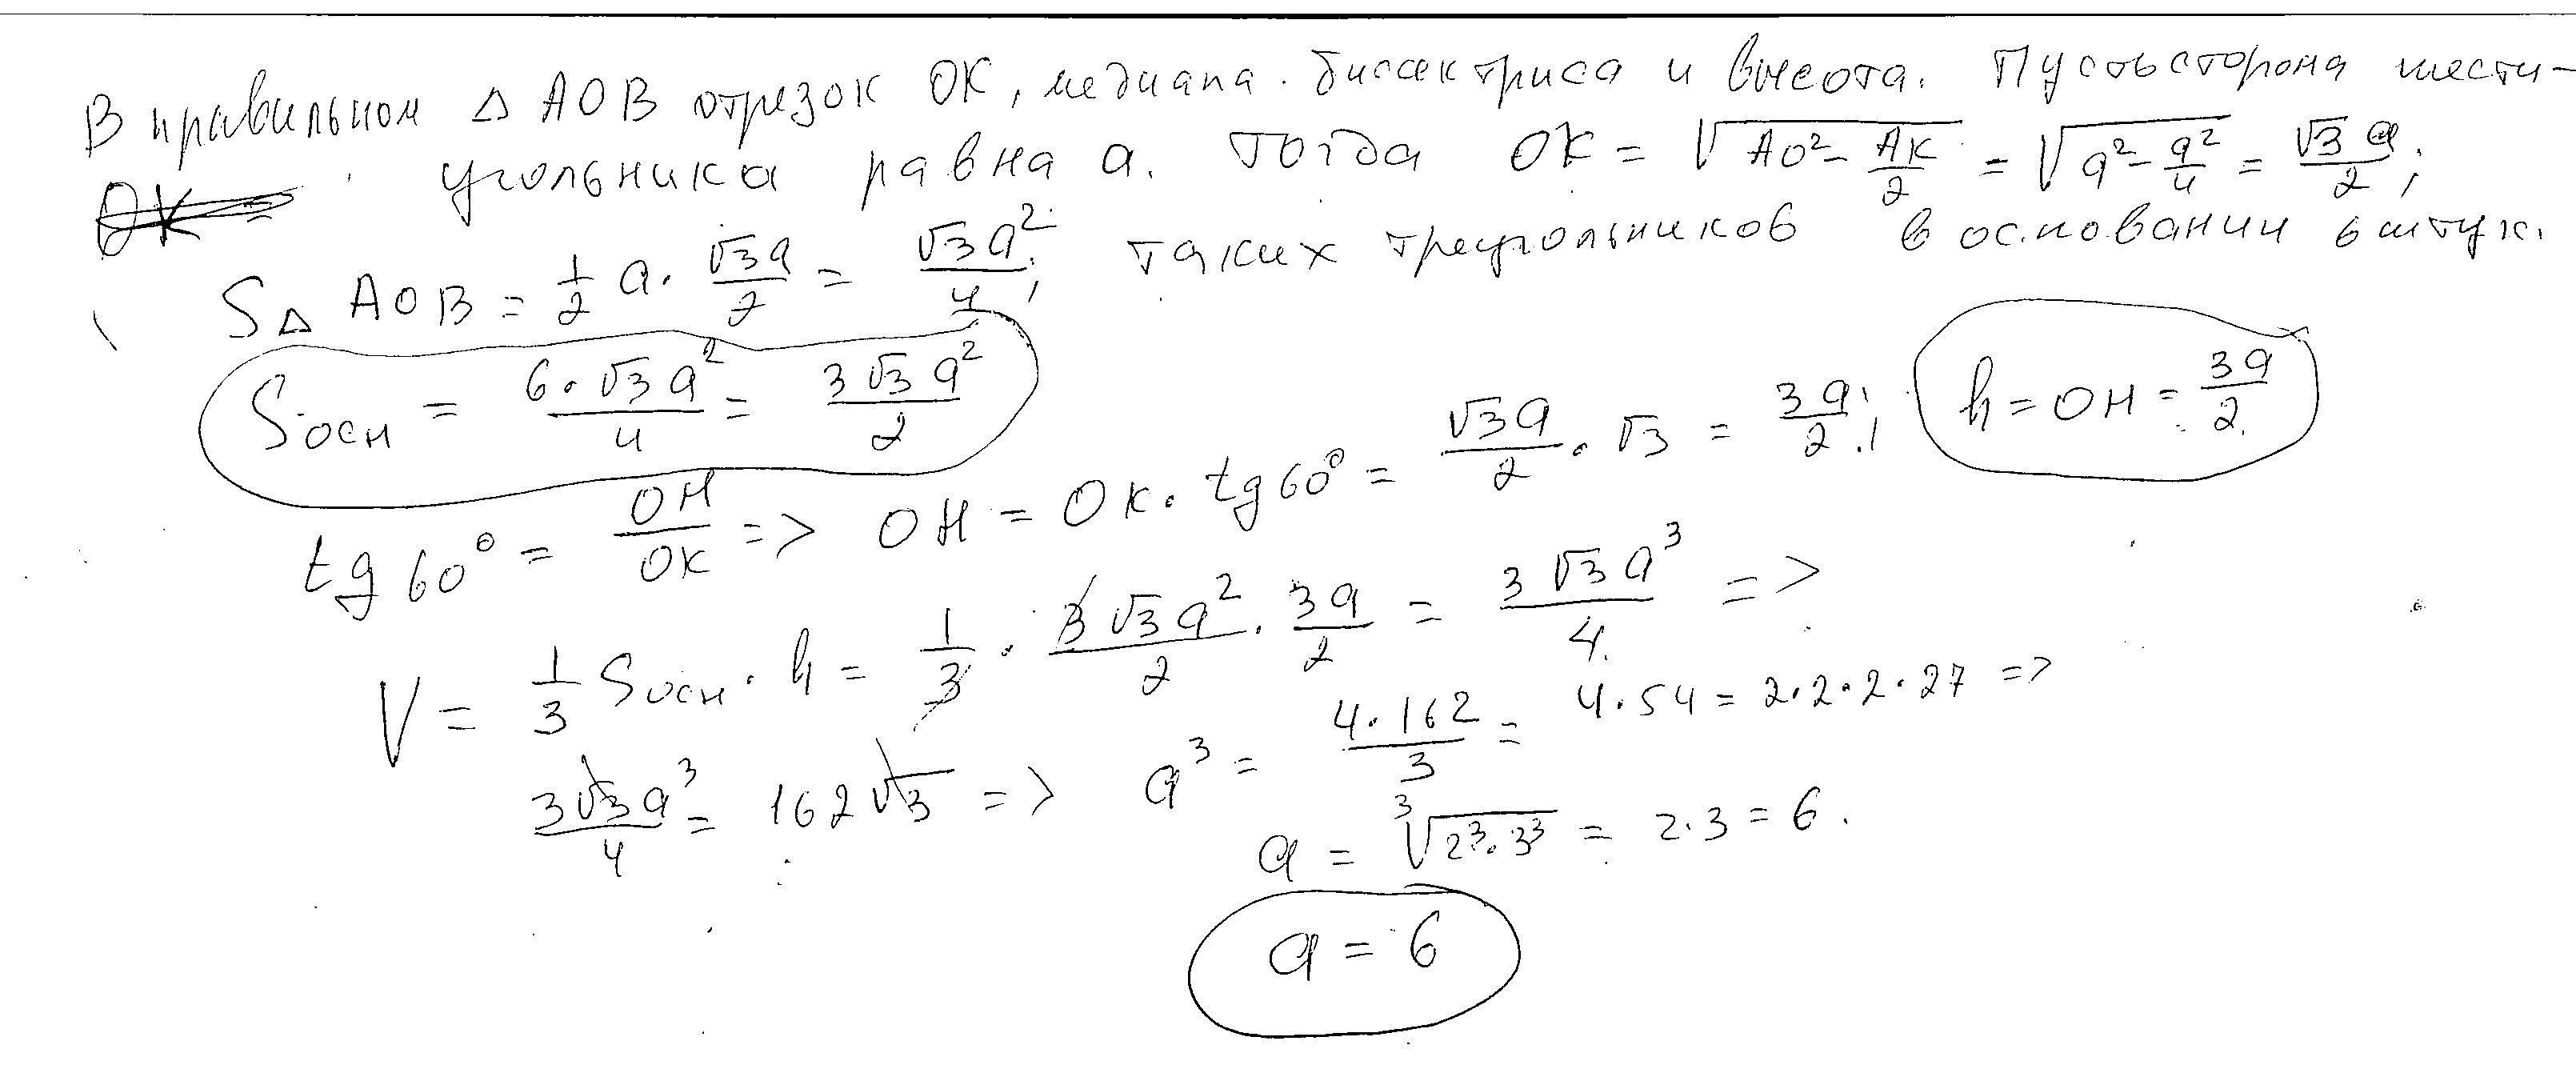 В правильном △ AOB отрезок OK, медиана. биссектриса и высота. Пусть сторона шести-
угольника равна a. Тогда OK = √(AO² - AK/2) = √(a² - a²/4) = √3 a/2;
S△ AOB = 1/2 a · √3a/2 = √3a²/4; таких треугольников в основании 6 штук.
Sосн = 6·√3a²/4 = 3√3a²/2
tg60° = OH/OK => OH = OK · tg60° = √3a/2 · √3 = 3a/2; h = OH = 3a/2
V = 1/3 Sосн · h = 1/3 · 3√3a²/2 · 3a/2 = 3√3a³/4 =>
3√3a³/4 = 162√3 => a³ = 4·162/3 = 4·54 = 2·2·2·27 =>
a = ∛(2³·3³) = 2·3 = 6.
a = 6